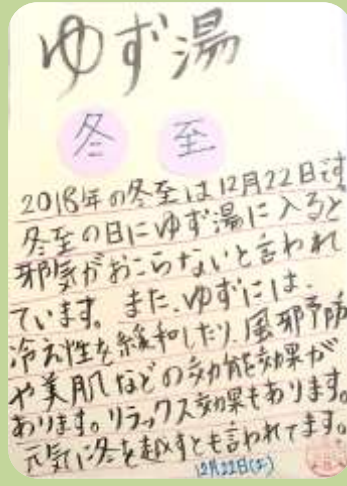 ゆず湯
冬至
2018年の冬至は12月22日です
冬至の日にゆず湯に入ると
邪気がおこらないと言われ
ています。また、ゆずには、
冷え性を緩和したり、風邪予防
や美肌などの効能効果が
あります。リラックス効果もあります。
元気に冬を越すとも言われてます。
12月22日(土)